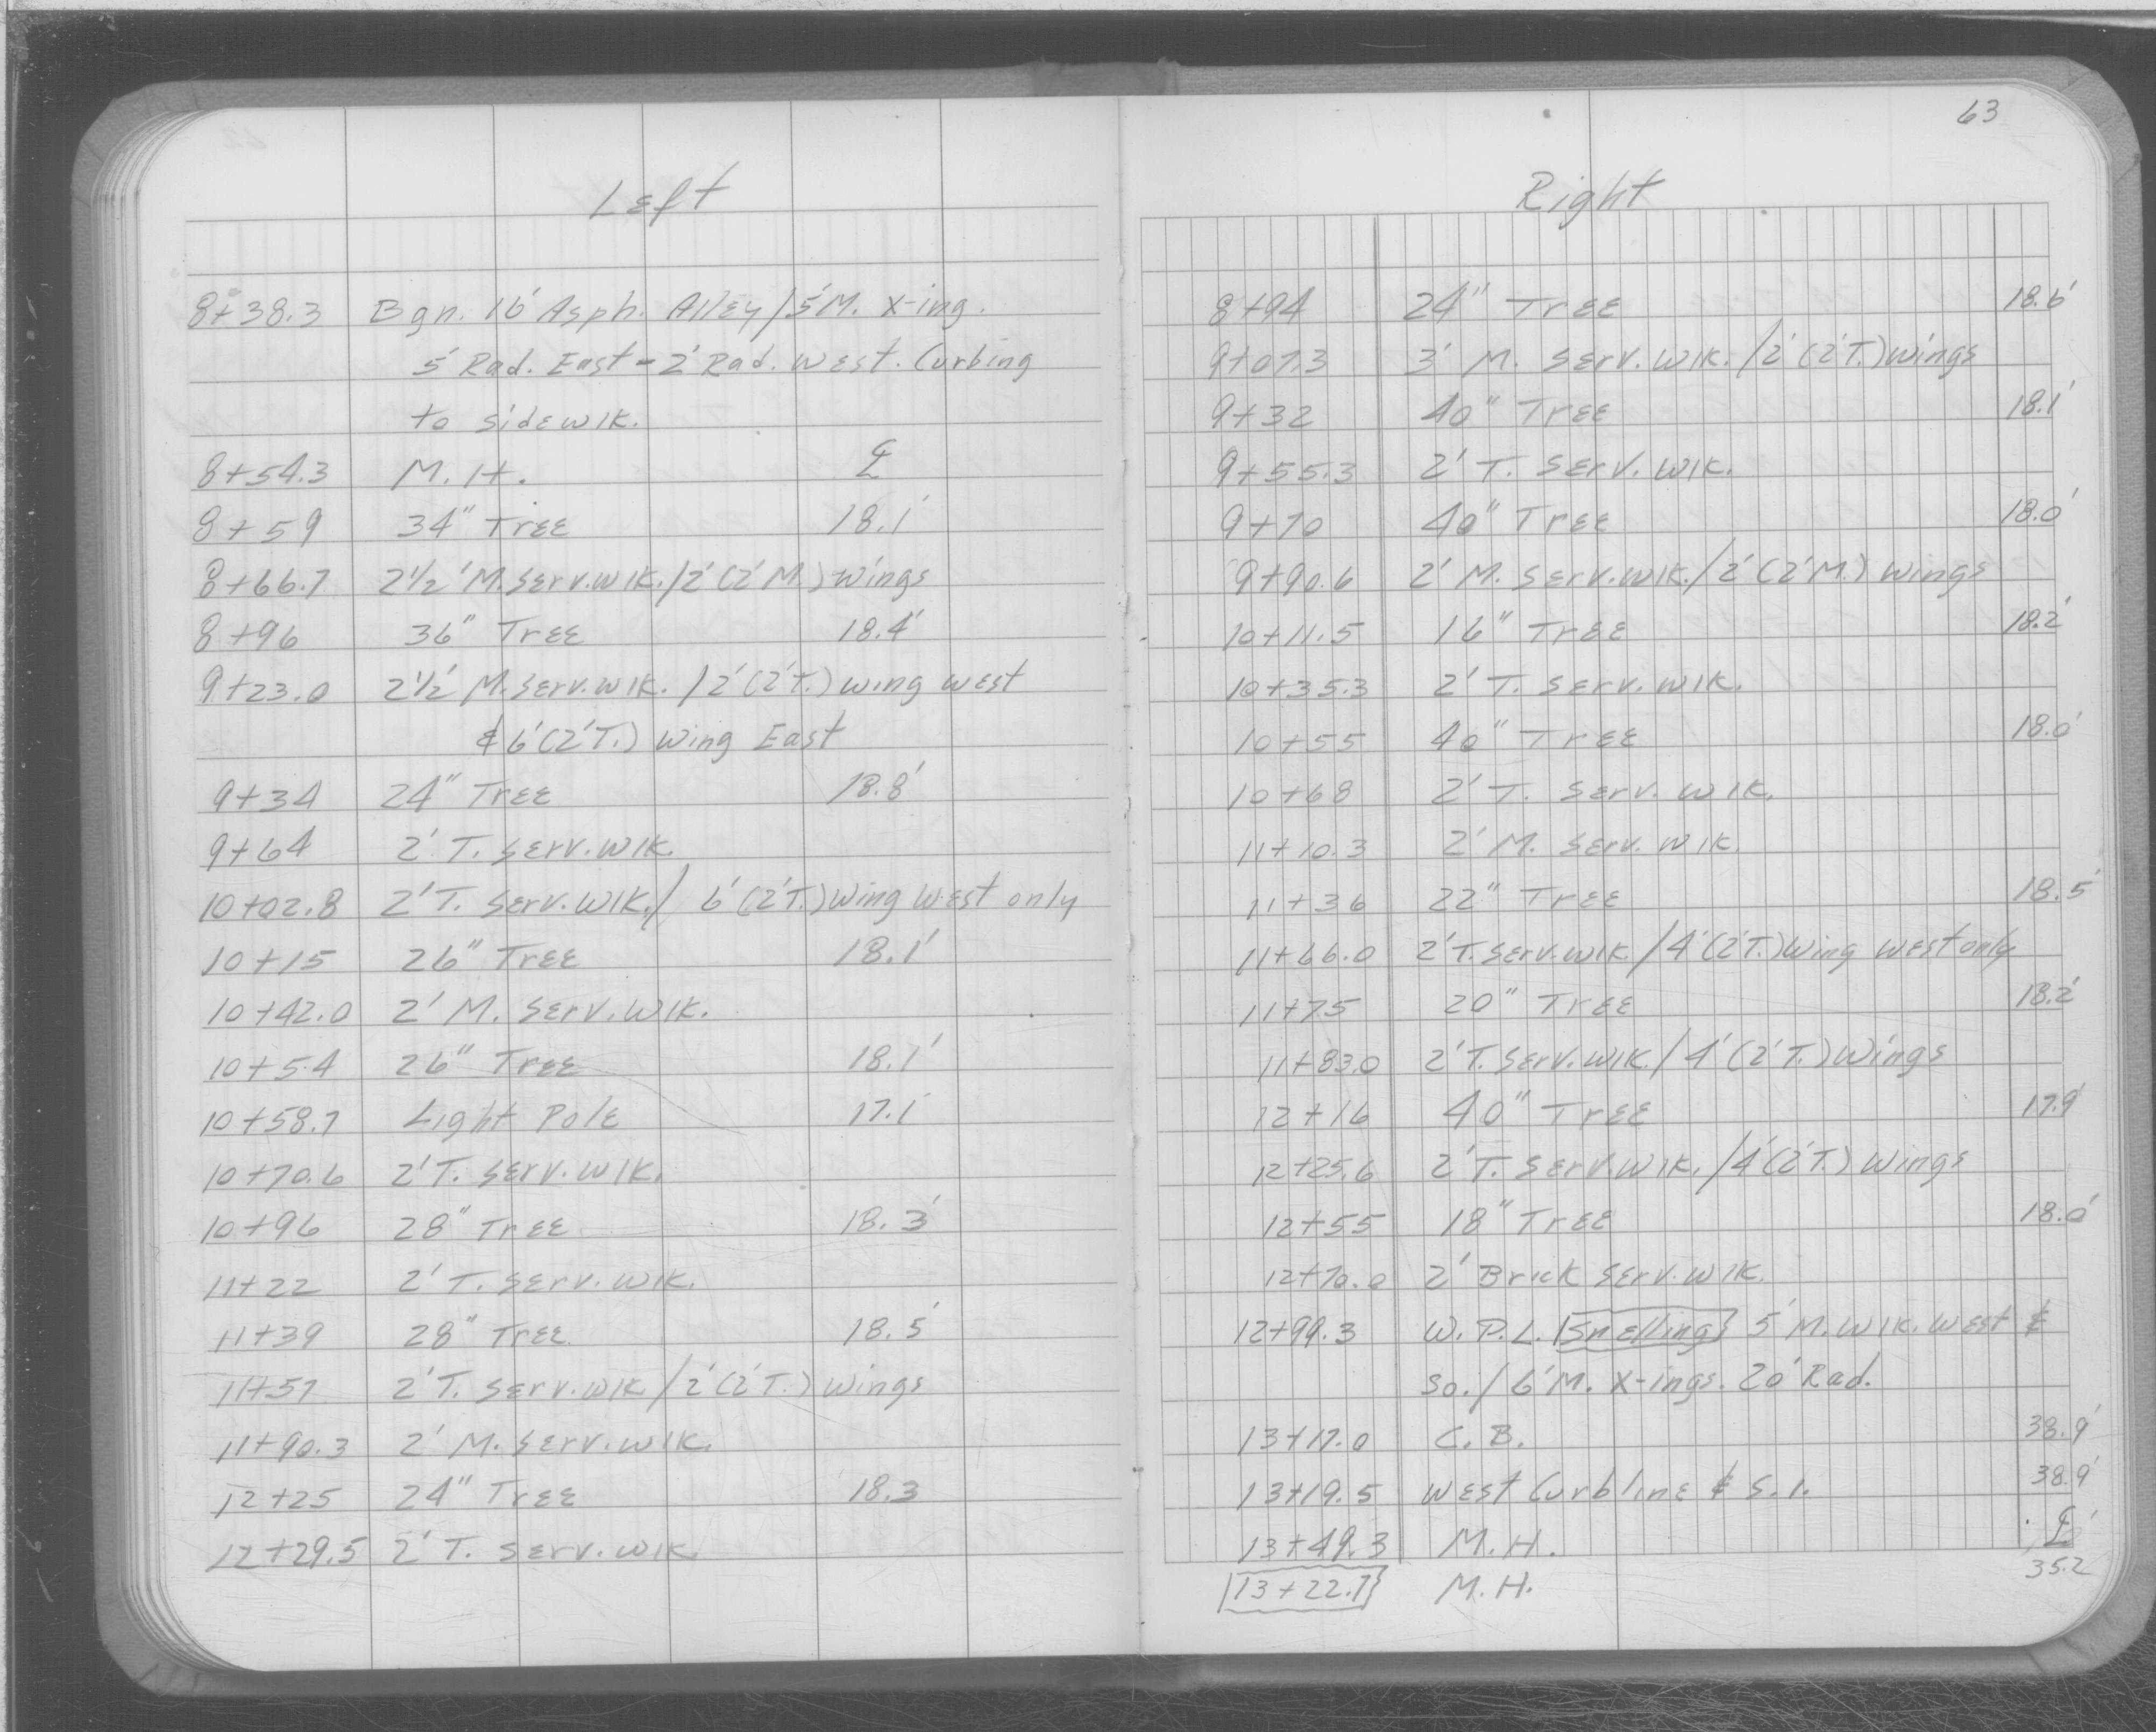 63
Left
8+38.3 Bgn. 16' Asph. Alley/5'M. X-ing.
5' Rad. East - 2' Rad. West. Curbing
to sidewlk.
8+54.3 M.H. ℄
8+59 34" Tree 18.1'
8+66.7 2½' M. Serv. wlk./2'(2'M.) wings
8+96 36" Tree 18.4'
9+23.0 2½' M. Serv. wlk./2'(2'T.) wing west
& 6'(2'T.) wing East
9+34 24" Tree 18.8'
9+64 2' T. Serv. wlk.
10+02.8 2' T. Serv. wlk./ 6'(2'T.) wing west only
10+15 26" Tree 18.1'
10+42.0 2' M. Serv. wlk.
10+54 26" Tree 18.1'
10+58.7 Light Pole 17.1'
10+70.6 2' T. Serv. wlk.
10+96 28" Tree 18.3'
11+22 2' T. Serv. wlk.
11+39 28" Tree 18.5'
11+57 2' T. Serv. wlk/2'(2'T.) wings
11+90.3 2' M. Serv. wlk.
12+25 24" Tree 18.3
12+29.5 2' T. Serv. wlk
Right
8+94 24" Tree 18.6'
9+07.3 3' M. Serv. wlk./2'(2'T.) wings
9+32 40" Tree 18.1'
9+55.3 2' T. Serv. wlk.
9+70 40" Tree 18.0'
9+90.6 2' M. Serv. wlk./2'(2'M.) wings
10+11.5 16" Tree 18.2'
10+35.3 2' T. Serv. wlk.
10+55 40" Tree 18.0'
10+68 2' T. Serv. wlk.
11+10.3 2' M. Serv. wlk.
11+36 22" Tree 18.5'
11+66.0 2' T. Serv. wlk/4'(2'T.) wing west only
11+75 20" Tree 18.2'
11+83.0 2' T. Serv. wlk./4'(2'T.) wings
12+16 40" Tree 17.9'
12+25.6 2' T. Serv. wlk./4'(2'T.) wings
12+55 18" Tree 18.0'
12+70.0 2' Brick Serv. wlk.
12+99.3 W.P.L. Snelling 5' M. wlk. west &
So./6'M. X-ings. 20' Rad.
13+17.0 C.B. 38.9'
13+19.5 West Curbline & S.I. 38.9'
13+49.3 M.H. ℄
13+22.7 M.H. 35.2'